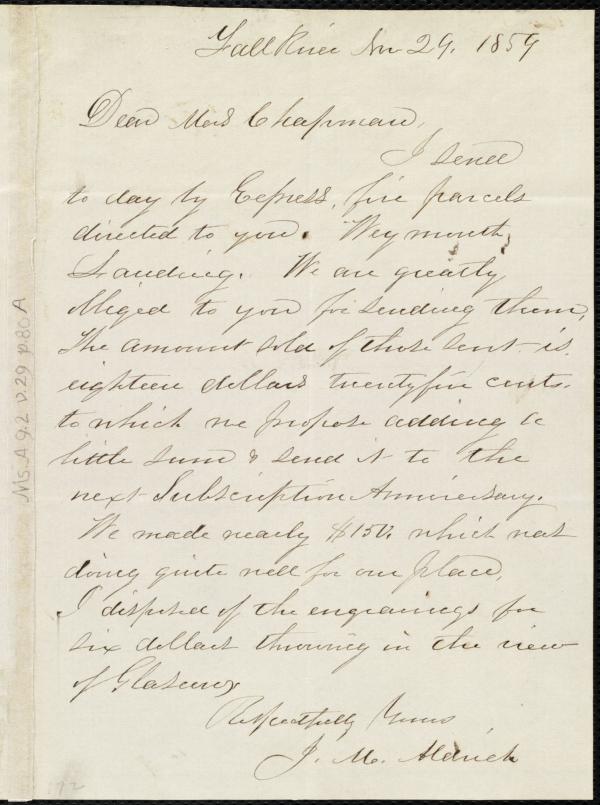 Fall River Nov 29. 1859
Dear Mrs Chapman,
I send
to day by Express, five parcels
directed to you. Weymouth
Landing. We are greatly
obliged to you for sending them,
The amount sold of those sent is
eighteen dollars twentyfive cents.
to which we propose adding a
little sum & send it to the
next Subscription Anniversary.
We made nearly $150. which
doing quite well for our place,
I disposed of the engravings for
six dollars throwing in the view
of Glasgow
Respectfully Yours,
J. M. Aldrich
Ms. A 9.2 v.29 p.80 A